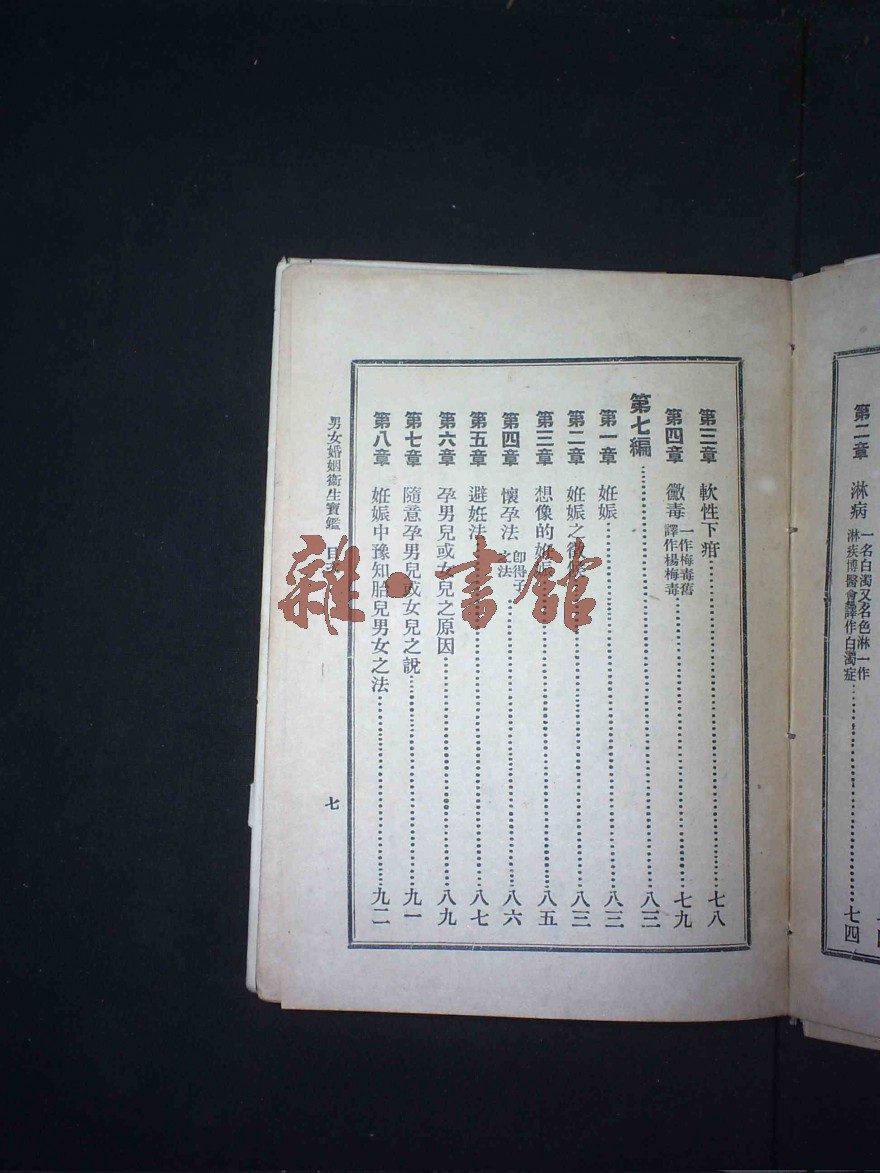 第二章　淋病　一名白濁又名色淋一作淋疾博醫會譯作白濁症……七四
第三章　軟性下疳……七八
第四章　黴毒　一作梅毒舊譯作楊梅毒……七九
第七編……八三
第一章　妊娠……八三
第二章　妊娠之徵……八三
第三章　想像的妊娠……八五
第四章　懷孕法　即得子之法……八六
第五章　避妊法……八七
第六章　孕男兒或女兒之原因……八九
第七章　隨意孕男兒或女兒之說……九一
第八章　妊娠中豫知胎兒男女之法……九二
男女婚姻衛生寶鑑　目　七
雜·書館